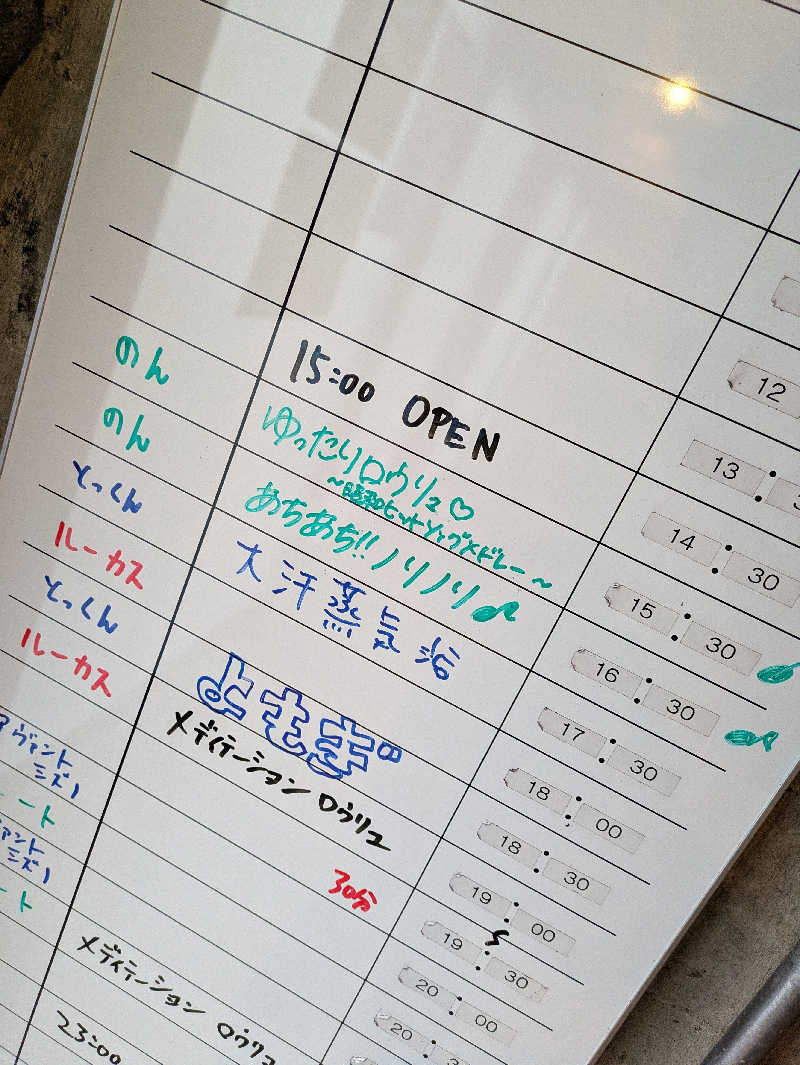 12
13 :
15:00 OPEN
14 : 30
のん
ゆったりロウリュ♡
~昭和ヒットソングメドレー~
15 : 30
のん
あちあち!!ノリノリ
16 : 30
とっくん
大汗蒸気浴
17 : 30
ルーカス
18 : 00
とっくん
よもぎ
18 : 30
ルーカス
メディテーション ロウリュ
19 : 00
19 : 30
ヴァント
ミズノ
30分
20 : 00
ート
20 : 3
ヴァント
ミズノ
ート
メディテーション ロウリュ
23:00